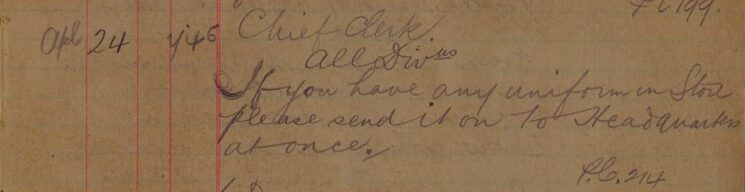 P.C. 199.
Apl 24 7/45 Chief Clerk.
All Divns
If you have any uniform in Store
please send it on to Headquarters
at once.
P.C. 214